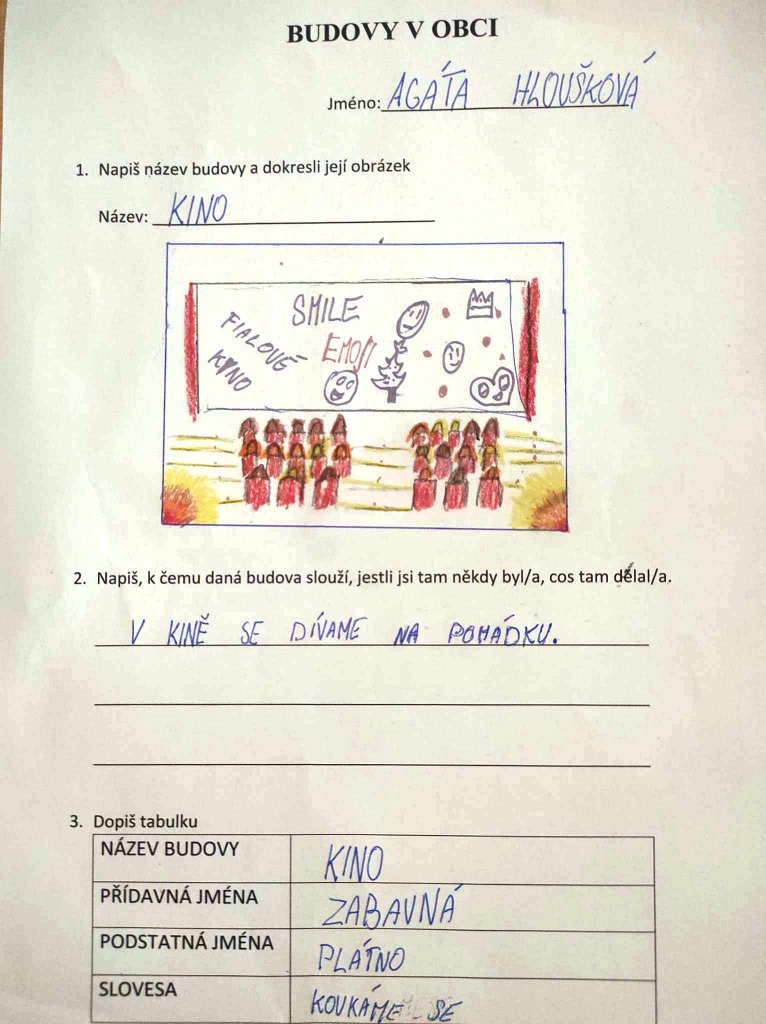 BUDOVY V OBCI
Jméno: AGÁTA HLOUŠKOVÁ
1. Napiš název budovy a dokresli její obrázek
Název: KINO
SMILE
FIALOVÉ
EMOJI
KINO
2. Napiš, k čemu daná budova slouží, jestli jsi tam někdy byl/a, cos tam dělal/a.
V KINĚ SE DÍVAME NA POHÁDKU.
3. Dopiš tabulku
NÁZEV BUDOVY KINO
PŘÍDAVNÁ JMÉNA ZABAVNÁ
PODSTATNÁ JMÉNA PLÁTNO
SLOVESA KOUKÁME SE